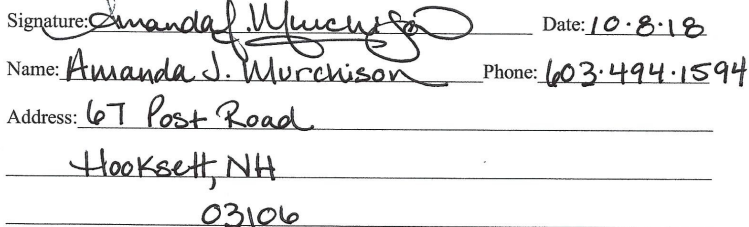 Signature: Amanda J. Murchison Date: 10.8.18
Name: Amanda J. Murchison Phone: 603.494.1594
Address: 67 Post Road
Hooksett, NH
03106